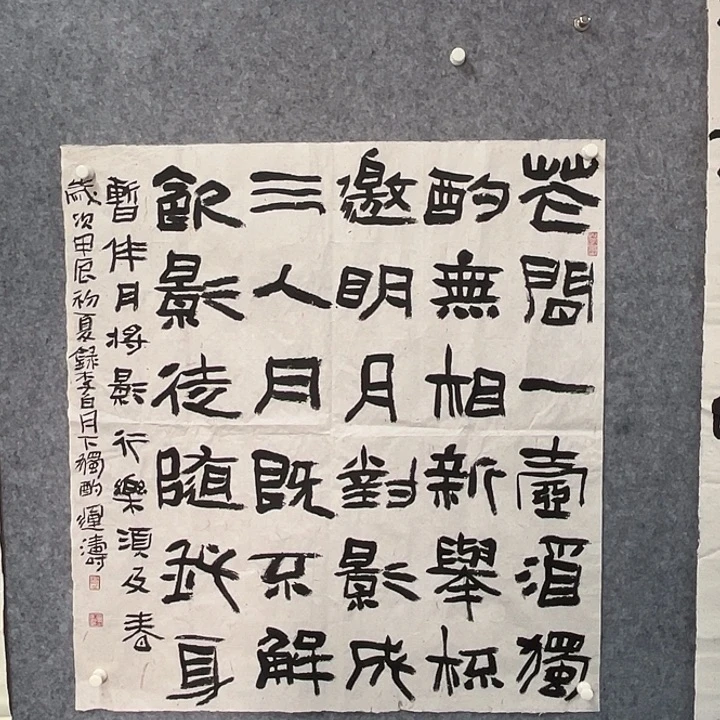 花間一壺酒獨
酌無相新舉杯
邀明月對影成
三人月既不解
飲影徒随我身
暫伴月將影行樂須及春
歲次甲辰初夏録李白月下獨酌運濤